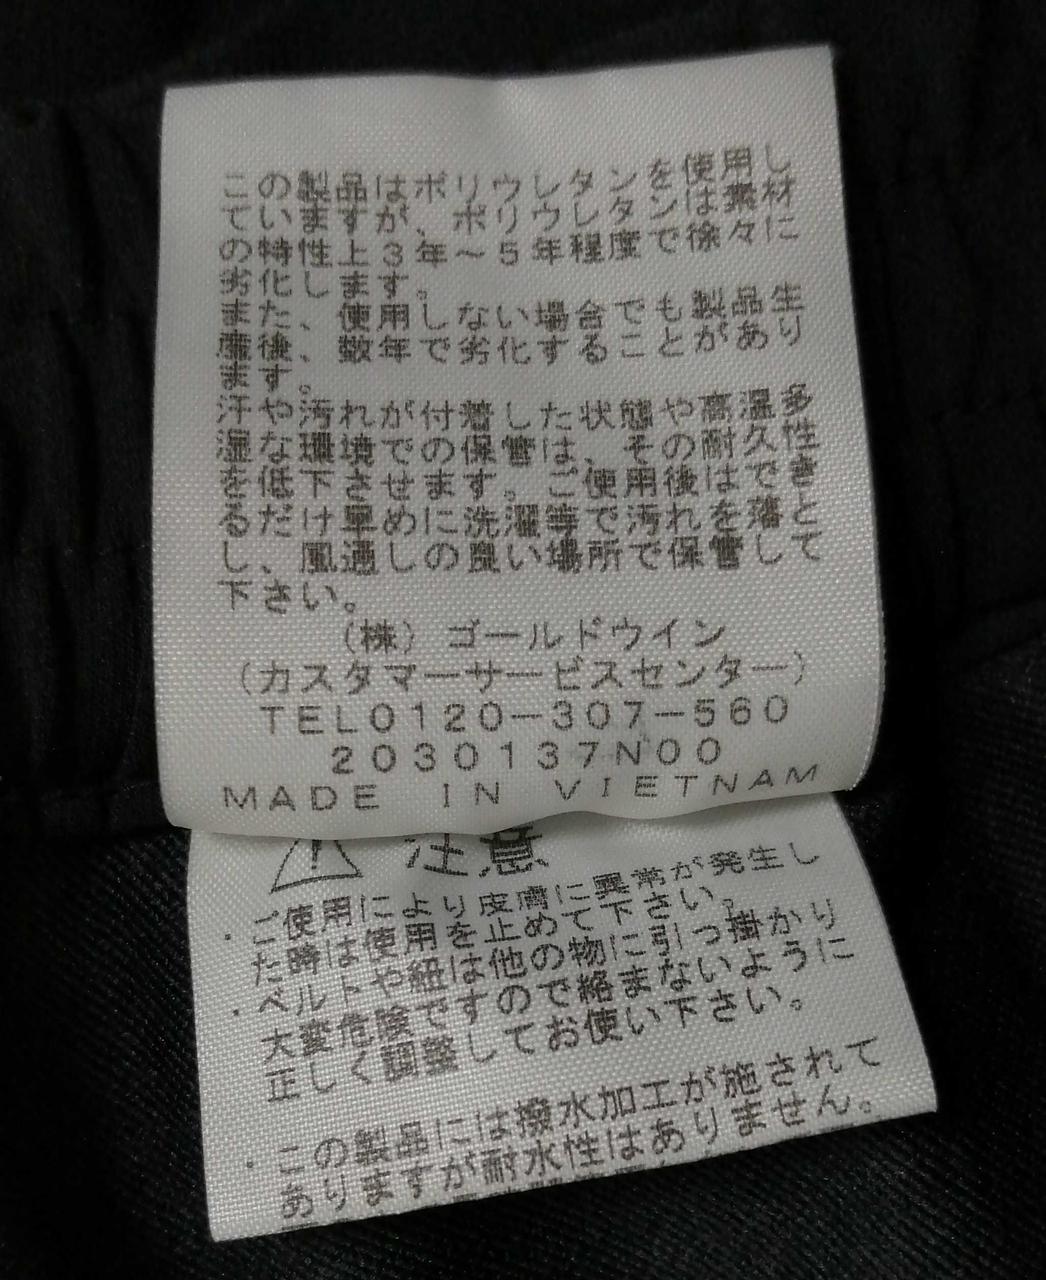 この製品はポリウレタンを使用し
ていますが、ポリウレタンは素材
の特性上3年～5年程度で徐々に
劣化します。
また、使用しない場合でも製品生
産後、数年で劣化することがあり
ます。
汗や汚れが付着した状態や高温多
湿な環境での保管は、その耐久性
を低下させます。ご使用後はでき
るだけ早めに洗濯等で汚れを落と
し、風通しの良い場所で保管して
下さい。
(株) ゴールドウイン
(カスタマーサービスセンター)
TEL0120-307-560
2030137N00
MADE IN VIETNAM
注意
・ご使用により皮膚に異常が発生し
た時は使用を止めて下さい。
・ベルトや紐は他の物に引っ掛かり
大変危険ですので絡まないように
正しく調整してお使い下さい。
・この製品には撥水加工が施されて
ありますが耐水性はありません。